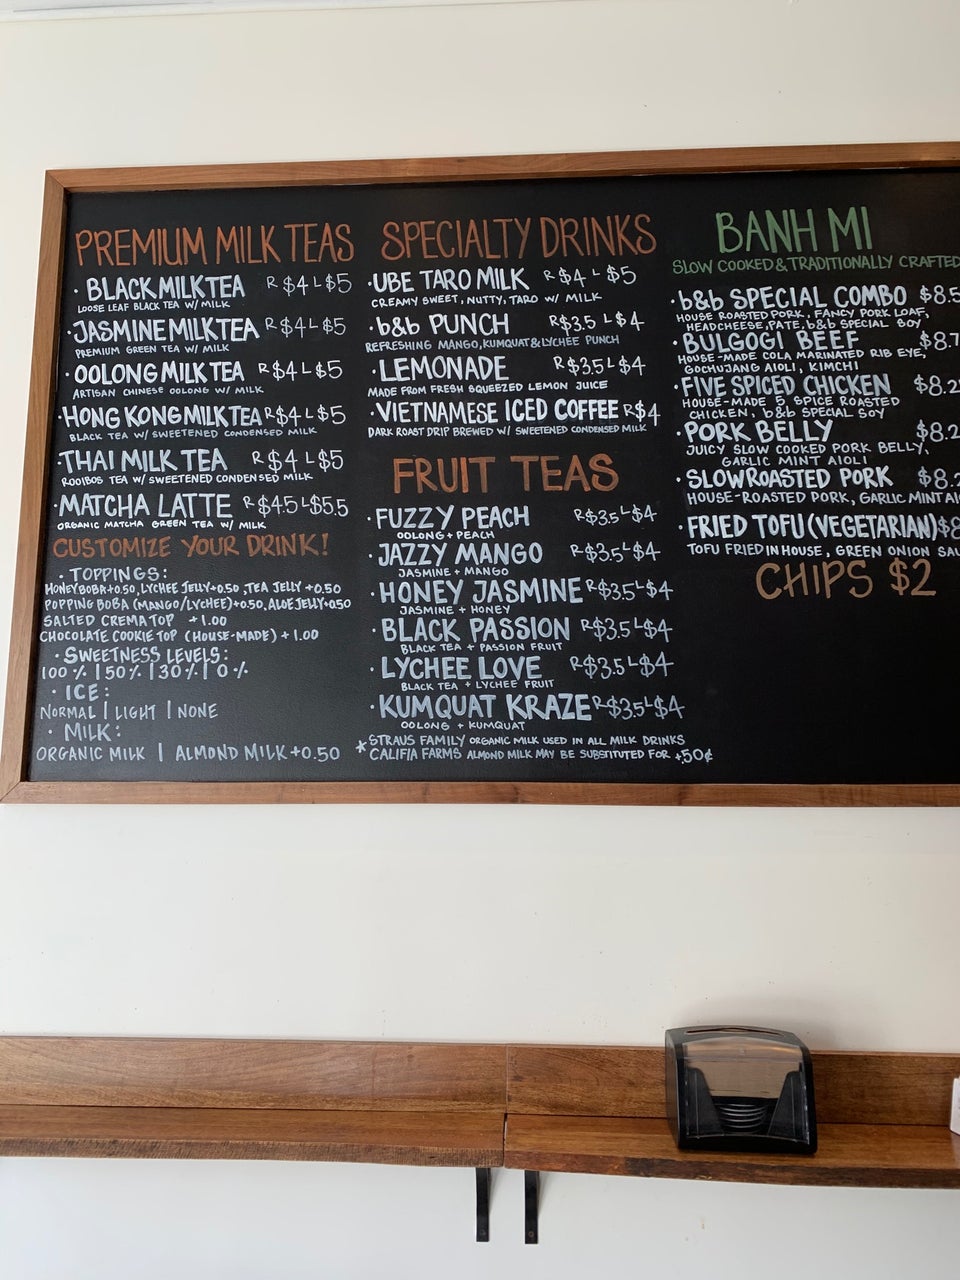 PREMIUM MILK TEAS
· BLACK MILK TEA R $4 L $5
LOOSE LEAF BLACK TEA W/ MILK
· JASMINE MILK TEA R $4 L $5
PREMIUM GREEN TEA W/ MILK
· OOLONG MILK TEA R $4 L $5
ARTISAN CHINESE OOLONG W/ MILK
· HONG KONG MILK TEA R $4 L $5
BLACK TEA W/ SWEETENED CONDENSED MILK
· THAI MILK TEA R $4 L $5
ROOIBOS TEA W/ SWEETENED CONDENSED MILK
· MATCHA LATTE R $4.5 L $5.5
ORGANIC MATCHA GREEN TEA W/ MILK
CUSTOMIZE YOUR DRINK!
· TOPPINGS:
HONEY BOBA +0.50, LYCHEE JELLY +0.50, TEA JELLY +0.50
POPPING BOBA (MANGO/LYCHEE) +0.50, ALOE JELLY +0.50
SALTED CREMA TOP +1.00
CHOCOLATE COOKIE TOP (HOUSE-MADE) +1.00
· SWEETNESS LEVELS:
100% | 50% | 30% | 0%
· ICE:
NORMAL | LIGHT | NONE
· MILK:
ORGANIC MILK | ALMOND MILK +0.50
SPECIALTY DRINKS
· UBE TARO MILK R $4 L $5
CREAMY SWEET, NUTTY, TARO W/ MILK
· b&b PUNCH R $3.5 L $4
REFRESHING MANGO, KUMQUAT & LYCHEE PUNCH
· LEMONADE R $3.5 L $4
MADE FROM FRESH SQUEEZED LEMON JUICE
· VIETNAMESE ICED COFFEE R $4
DARK ROAST DRIP BREWED W/ SWEETENED CONDENSED MILK
FRUIT TEAS
· FUZZY PEACH R $3.5 L $4
OOLONG + PEACH
· JAZZY MANGO R $3.5 L $4
JASMINE + MANGO
· HONEY JASMINE R $3.5 L $4
JASMINE + HONEY
· BLACK PASSION R $3.5 L $4
BLACK TEA + PASSION FRUIT
· LYCHEE LOVE R $3.5 L $4
BLACK TEA + LYCHEE FRUIT
· KUMQUAT KRAZE R $3.5 L $4
OOLONG + KUMQUAT
* STRAUS FAMILY ORGANIC MILK USED IN ALL MILK DRINKS
CALIFIA FARMS ALMOND MILK MAY BE SUBSTITUTED FOR +50¢
BANH MI
SLOW COOKED & TRADITIONALLY CRAFTED
· b&b SPECIAL COMBO $8.5
HOUSE ROASTED PORK, FANCY PORK LOAF,
HEADCHEESE, PATE, b&b SPECIAL SOY
· BULGOGI BEEF $8.7
HOUSE-MADE COLA MARINATED RIB EYE,
GOCHUJANG AIOLI, KIMCHI
· FIVE SPICED CHICKEN $8.2
HOUSE-MADE 5 SPICE ROASTED
CHICKEN, b&b SPECIAL SOY
· PORK BELLY $8.2
JUICY SLOW COOKED PORK BELLY,
GARLIC MINT AIOLI
· SLOW ROASTED PORK $8.2
HOUSE-ROASTED PORK, GARLIC MINT
· FRIED TOFU (VEGETARIAN) $8
TOFU FRIED IN HOUSE, GREEN ONION
CHIPS $2